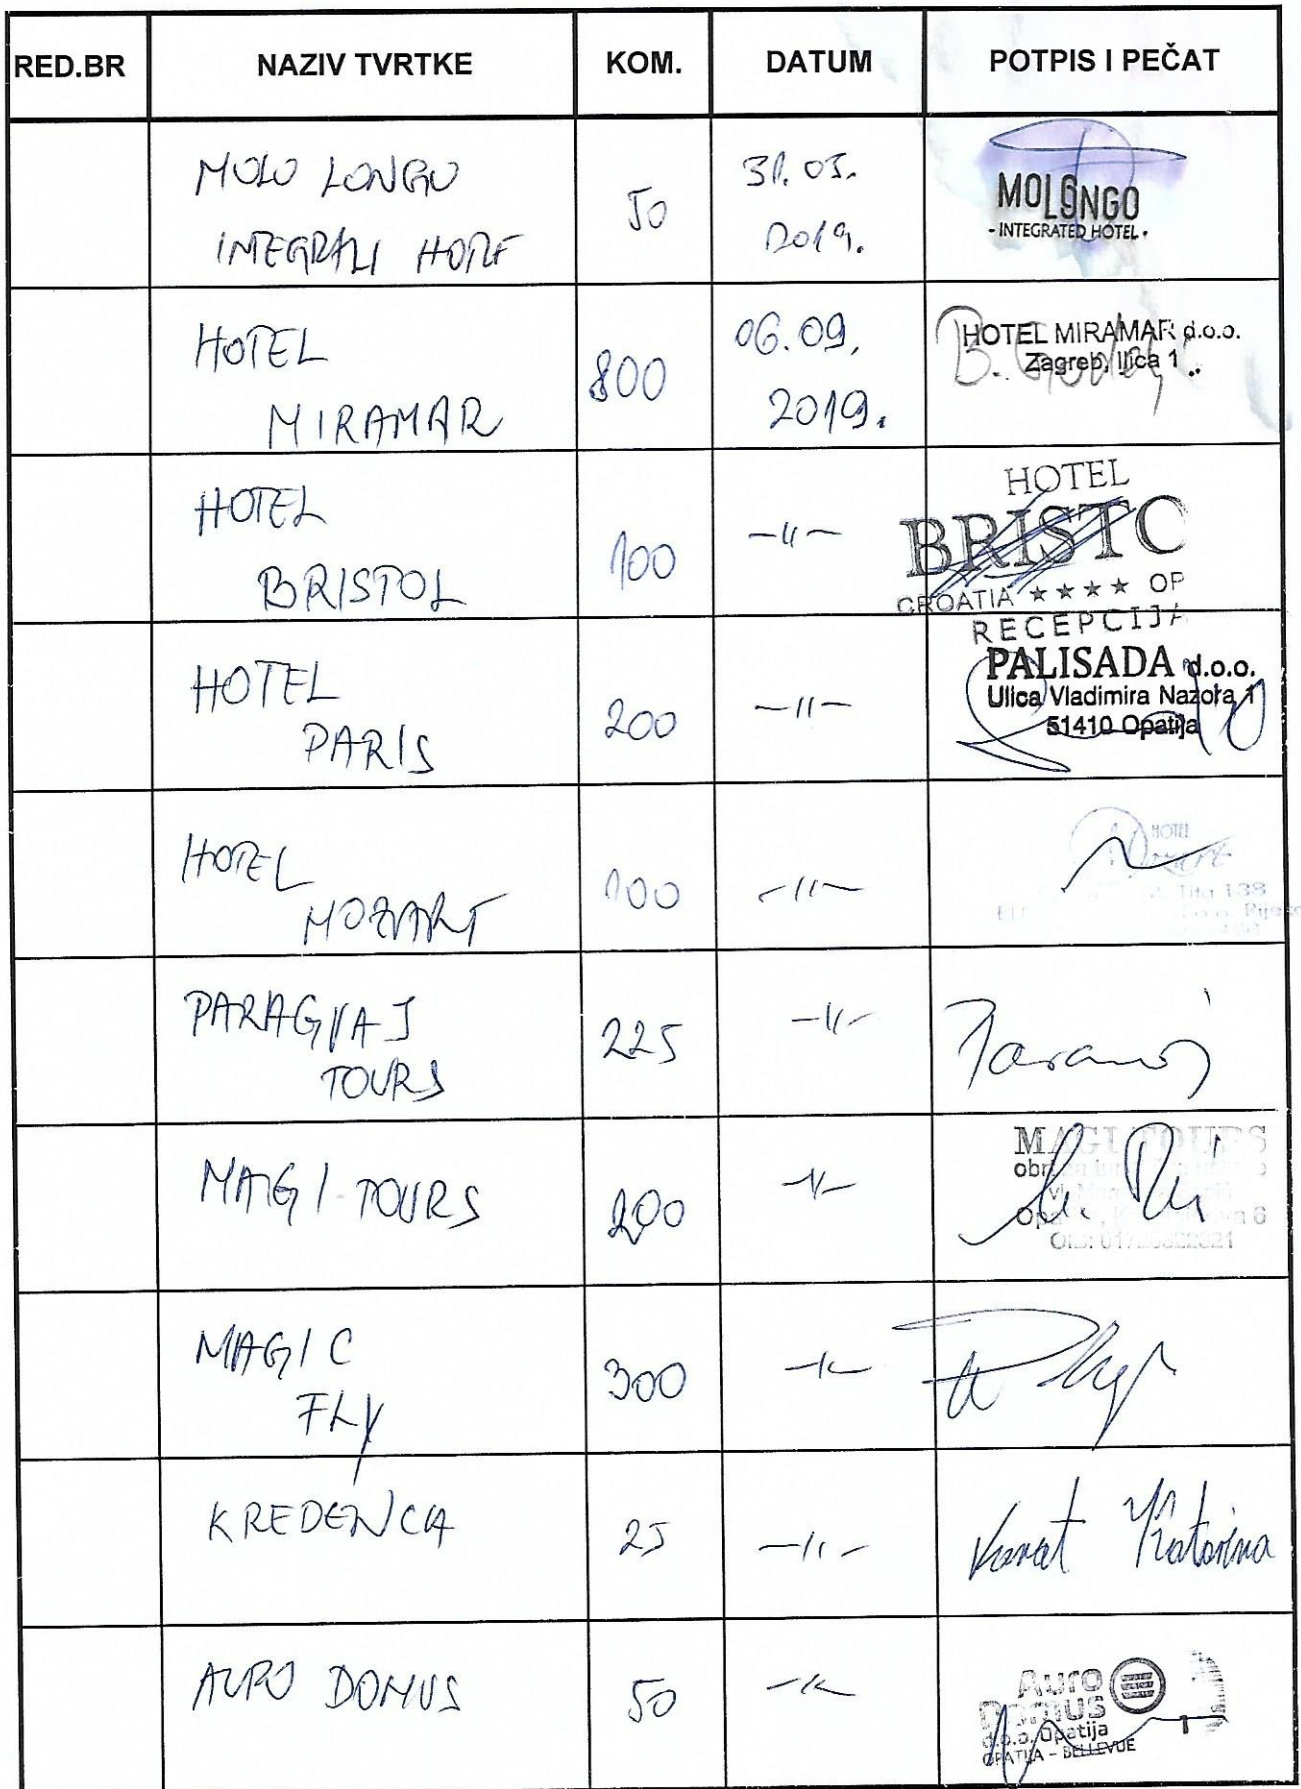 RED.BR NAZIV TVRTKE KOM. DATUM POTPIS I PEČAT
MOLO LONGO 50 31.05.
INTEGRALI HOTE 2019.
MOLONGO
- INTEGRATED HOTEL -
HOTEL 800 06.09.
MIRAMAR 2019.
HOTEL MIRAMAR d.o.o.
Zagreb, Ilica 1
HOTEL 100 -"-
BRISTOL
HOTEL
BRISTO
CROATIA ★★★★ OP
RECEPCIJA
HOTEL 200 -"-
PARIS
PALISADA d.o.o.
Ulica Vladimira Nazora 1
51410 Opatija
HOTEL 100 -"-
MOZART
HOTEL
Tita 138
PARAGVAJ 225 -"-
TOURS
MAGI-TOURS 200 -"-
MAGI TOURS
MAGIC 300 -"-
FLY
KREDENCA 25 -"-
Katarina
AURO DOMUS 50 -"-
Auro
Domus
d.o.o. Opatija
OPATIJA - BELLEVUE
1